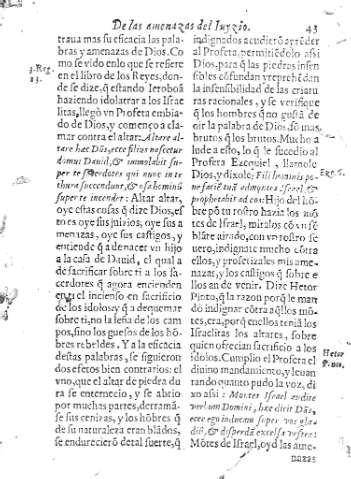 De las amenazas del Iuyzio. 43
traua mas su eficacia las palabras
y amenazas de Dios. Co
mo se vido enlo que se refiere
en el libro de los Reyes, don-
3. Reg.
13.
de se dize, q̃ estando Ieroboã
haziendo idolatrar a los Israe
litas, llegò vn Profeta embia-
do de Dios, y començo a cla-
mar contra el altar: Altare al-
tare hæc Dñs, ecce filius nascetur
domui Dauid, & immolabit su-
per te sacerdotes qui nunc in te
thura succendunt, & ossa hominũ
super te incendet: Altar altar,
oye estas cosas q̃ dize Dios, es-
to es oye sus juizios, oye sus a
menazas, oye sus castigos, y
entiende q̃ a de nacer vn hijo
a la casa de Dauid, el qual a
de sacrificar sobre ti a los sa-
cerdotes q̃ agora encienden
en ti el incienso en sacrificio
de los idolos y a de quemar
sobre ti, no la leña de los cam
pos, sino los guesos de los hõ-
bres rebeldes. Y a la eficacia
destas palabras, se siguieron
dos efetos bien contrarios: el
vno, que el altar de piedra du
ra se enternecio, y se abrio
por muchas partes, derramã-
se sus cenizas, y los hõbres q̃
de su naturaleza eran blãdos,
se endurecierõ detal suerte, q̃
indignados acudierõ a prẽder
al Profeta, permitiẽdolo assi
Dios, para q̃ las piedras insen
sibles cõfundan y reprehẽdan
la insensibilidad de las criatu
ras racionales, y se verifique
q̃ los hombres q̃ no gustã de
oir la palabra de Dios, sõ mas
brutos q̃ los brutos. Mucho a
lude a esto, lo q̃ le sucedio al
Profeta Ezequiel, llamole
Dios, y dixole: Fili hominis po-
Ezec. 6.
ne faciẽ tuã ad montes Israel, &
prophetabis ad eos: Hijo del hõ-
bre põ tu rostro hazia los mõ
tes de Israel, miralos cõ vn se
blãte airado, con vn rostro se
uero, indignate mucho contra
ellos, y profetizales mis ame-
nazas, y los castigos q̃ sobre e
llos an de venir. Dize Hetor
Pinto, q̃ la razon porq̃ le man
do indignar cõtra aq̃llos mõ-
tes, era, porq̃ en ellos teniã los
Israelitas los altares, sobre
quien ofrecian sacrificio a los
idolos. Cumplio el Profeta el
Hetor
P.
diuino mandamiento, y leuan
tando quanto pudo la voz, di
xo assi: Montes Israel audite
verbum Domini, hæc dicit Dñs,
ecce ego inducam super vos gla
diũ, & disperdã excelsa vestra:
Mõtes de Israel, oyd las ame-
nazas